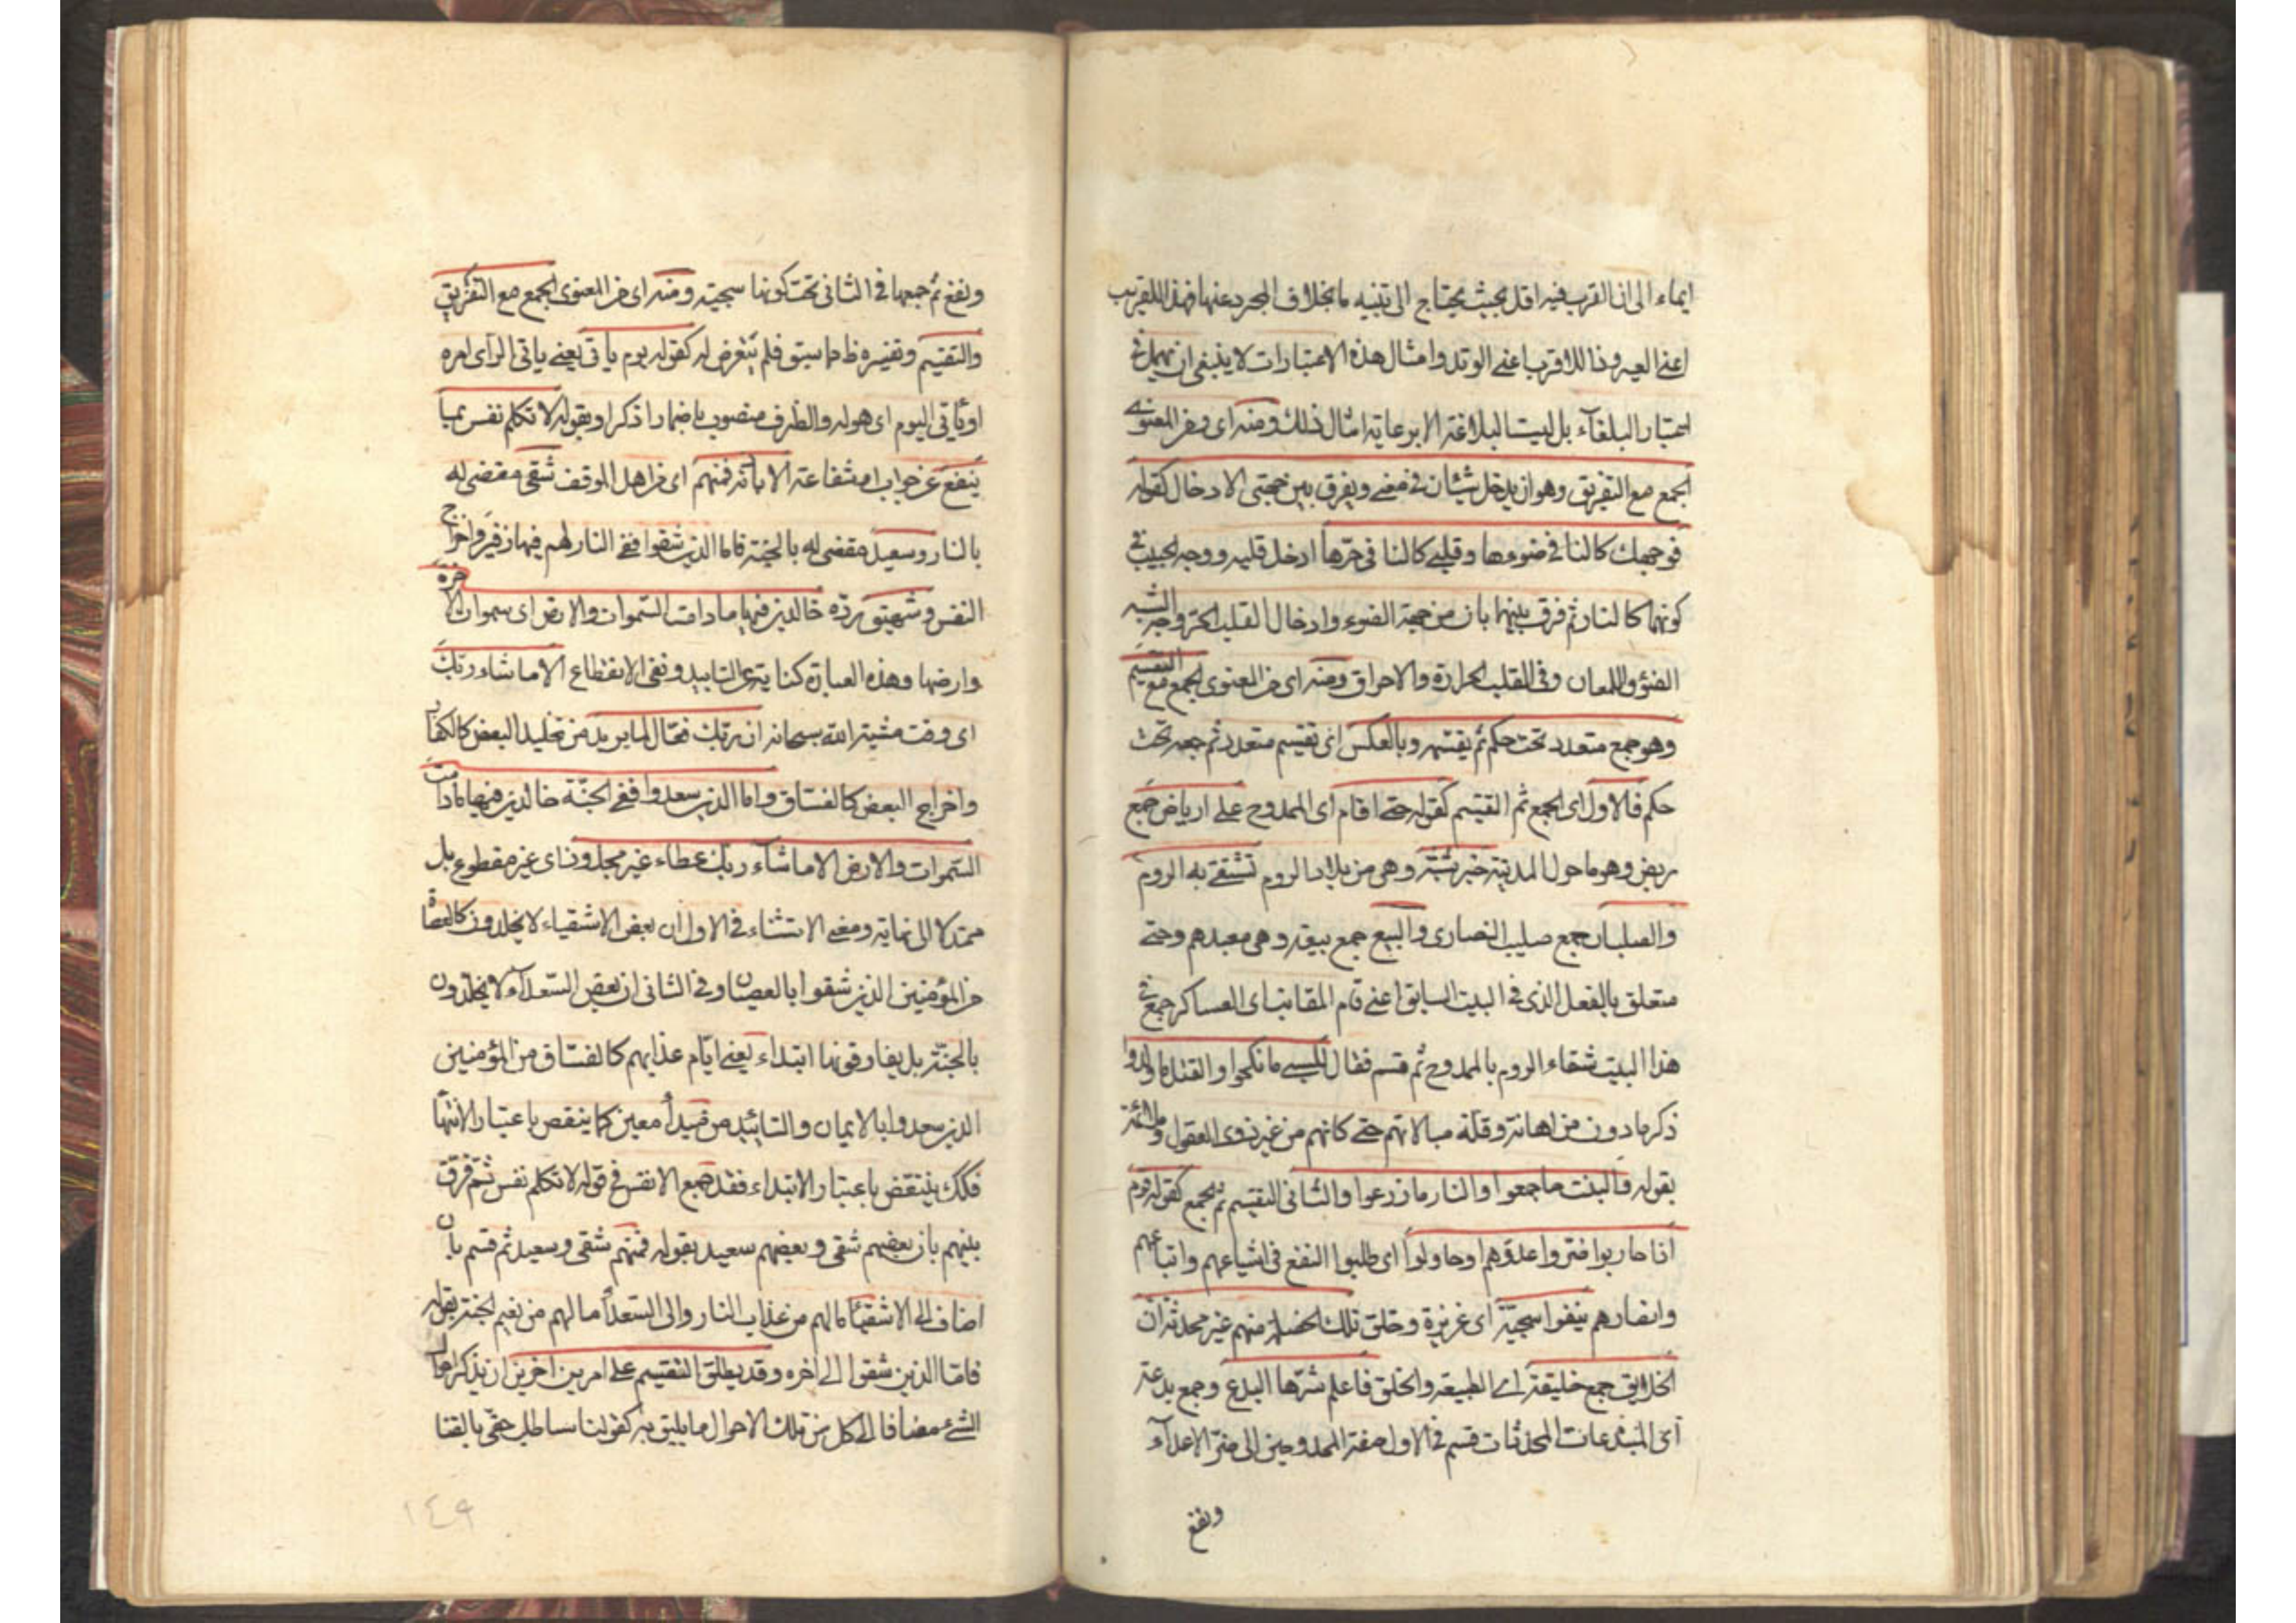 ايماء الى ان القرب فيه اقل بحيث يحتاج الى تنبيه ما بخلاف المجرد عنها فهذا للقريب
اعنى العير وذا للاقرب اعنى الوتد وامثال هذه الاعتبارات لا ينبغى ان تهمل فى
اعتبار البلغآء بل ليست البلاغة الا برعاية امثال ذلك ومنه اى ومن المعنوى
الجمع مع التفريق وهو ان يدخل شيئان فى معنى ويفرق بين جهتى الادخال كقوله
فوجهك كالنار فى ضوءها وقلبى كالنار فى حرّها ادخل قلبه ووجه الحبيب فى
كونهما كالنار ثم فرق بينهما بان من جهة الضوء وادخال القلب الحر وجه الشبه
الضوء واللمعان وفى القلب الحرارة والاحراق ومنه اى من المعنوى الجمع مع التقسيم
وهو جمع متعدد تحت حكم ثم يقسّمه وبالعكس اى تقسيم متعدد ثم جمعه تحت
حكم فالاول اى الجمع ثم التقسيم كقوله حتى اقام اى الممدوح على ارباض جمع
ربض وهو ما حول المدينة خرشنة وهى من بلاد الروم تشقى به الروم
والصلبان جمع صليب النصارى والبيع جمع بيعة وهى معبدهم وحتى
متعلق بالفعل الذى فى البيت السابق اعنى قام المقانب اى العساكر جمع فى
هذا البيت شقاء الروم بالممدوح ثم قسم فقال للسبى ما نكحوا والقتل ما ولدوا
ذكر ما دون من اهانة وقلة مبالاتهم حتى كانهم من غير ذوى العقول وملائمة
بقوله والبنت ما جمعوا والنار ما زرعوا والثانى التقسيم ثم الجمع كقوله قوم
اذا حاربوا ضرّوا عدوّهم او حاولوا اى طلبوا النفع فى اشياعهم واتباعهم
وانصارهم ينفوا سجيّة اى غريزة وخلق تلك الخصلة منهم غير محدثة ان
الخلايق جمع خليقة اى الطبيعة والخلق فاعلم شرّها البدع وجمع بدعة
اى المبتدعات المحدثات قسم فى الاول صفة الممدوحين الى ضرّ الاعدآء
ونفع
ونفع ثم جمعها فى الثانى تحت كونها سجيته ومنه اى من المعنوى الجمع مع التفريق
والتقسيم وتفسيره ظ مما سبق فلم يتعرض له كقوله يوم ياتى يعنى ياتى الراى امره
او ياتى اليوم اى هوله والظرف منصوب باضمار اذكر او بقوله لا تكلم نفس بما
ينفع من جواب او شفاعة الا باذنه فمنهم اى من اهل الموقف شقى مقضى له
بالنار وسعيد مقضى له بالجنة فاما الذين شقوا ففى النار لهم فيها زفير اخراج
النفس وشهيق ردّه خالدين فيها ما دامت السّموات والارض اى سموات الآخرة
وارضها وهذه العبارة كناية عن التابيد ونفى الانقطاع الا ما شاء ربّك
اى وقت مشية الله سبحانه ان ربّك فعّال لما يريد من تخليد البعض كالكفار
واخراج البعض كالفسّاق واما الذين سعدوا ففى الجنّة خالدين فيها ما دامت
السّموات والارض الا ما شآء ربك عطاء غير مجذوذ اى غير مقطوع بل
ممتد لا الى نهاية ومعنى الاستثناء فى الاول ان بعض الاشقياء لا يخلدون كالعصاة
من المؤمنين الذين شقوا بالعصيان وفى الثانى ان بعض السّعدآء لا يخلّدون
بالجنّة بل يفارقونها ابتداء يعنى ايّام عذابهم كالفسّاق من المؤمنين
الذين سعدوا بالايمان والتابيد من مبدأ معين كما ينقص باعتبار الانتهآ
فكك ينتقض باعتبار الابتداء فقد جمع الانفس فى قوله لا تكلم نفس ثم فرّق
بينهم بان بعضهم شقى وبعضهم سعيد بقوله فمنهم شقى وسعيد ثم قسم بان
اضاف الى الاشقيآ ما لهم من عذاب النار والى السّعدآ ما لهم من نعيم الجنة بقوله
فامّا الذين شقوا الى اخره وقد يطلق التقسيم على امرين اخرين ان يذكر احوال
الشئ مضافا الى كل من تلك الاحوال ما يليق به كقولنا ساطلب حقّى بالقنا
١٤٩